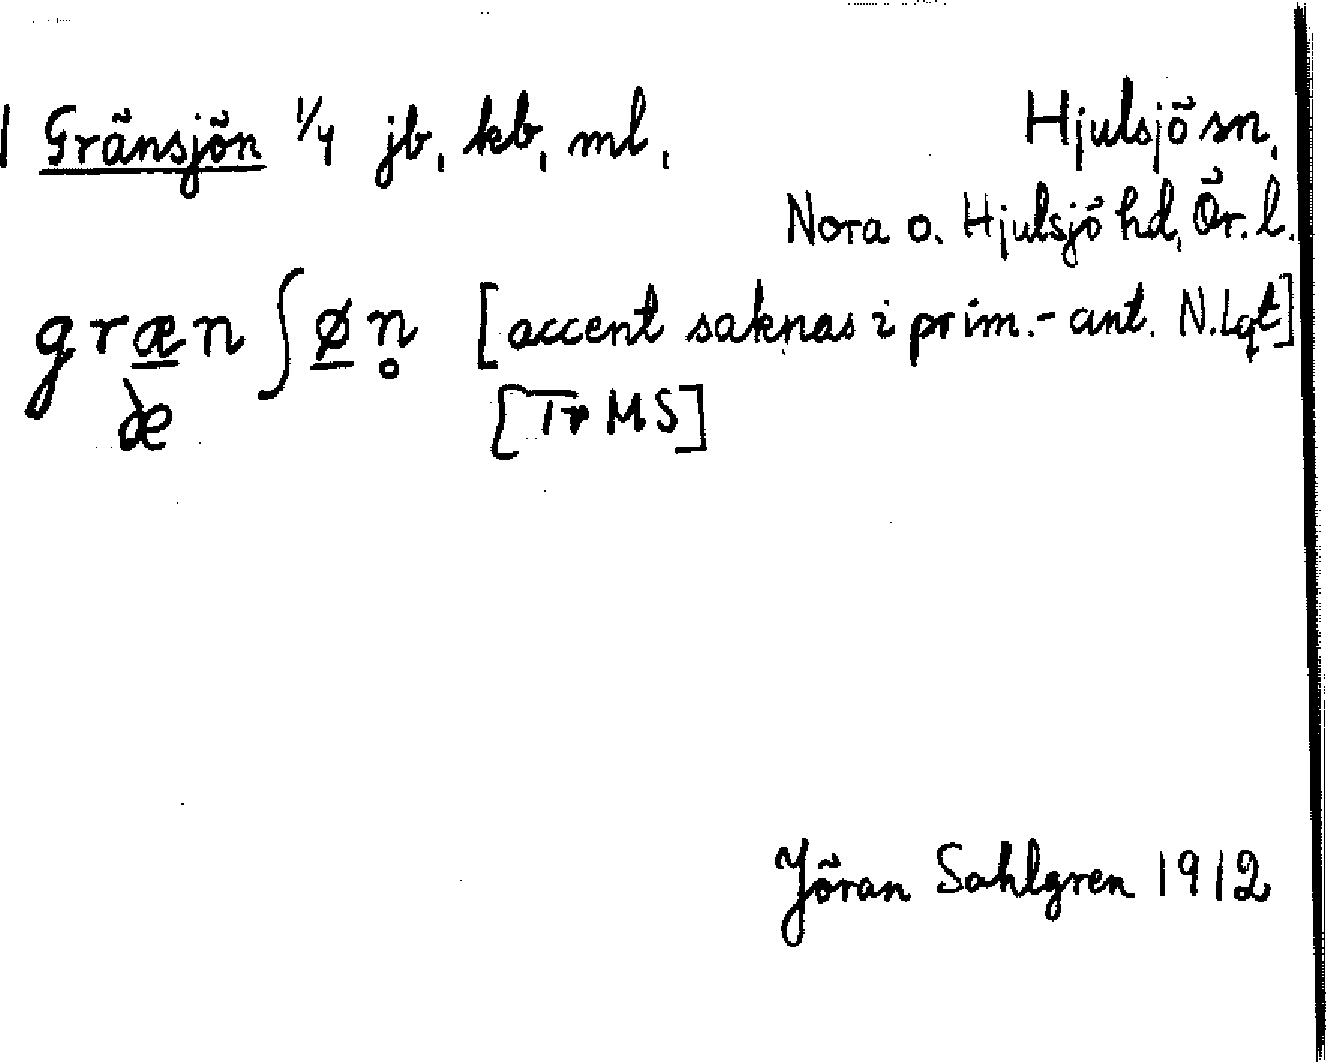 1 Gränsjön 1/4 jb, kb, ml,
Hjulsjö sn,
Nora o. Hjulsjö hd, Ör. l.
græn ʃøn̥ [accent saknas i prim.-ant. N.Lqt]
æ [Tr MS]
Jöran Sahlgren 1912